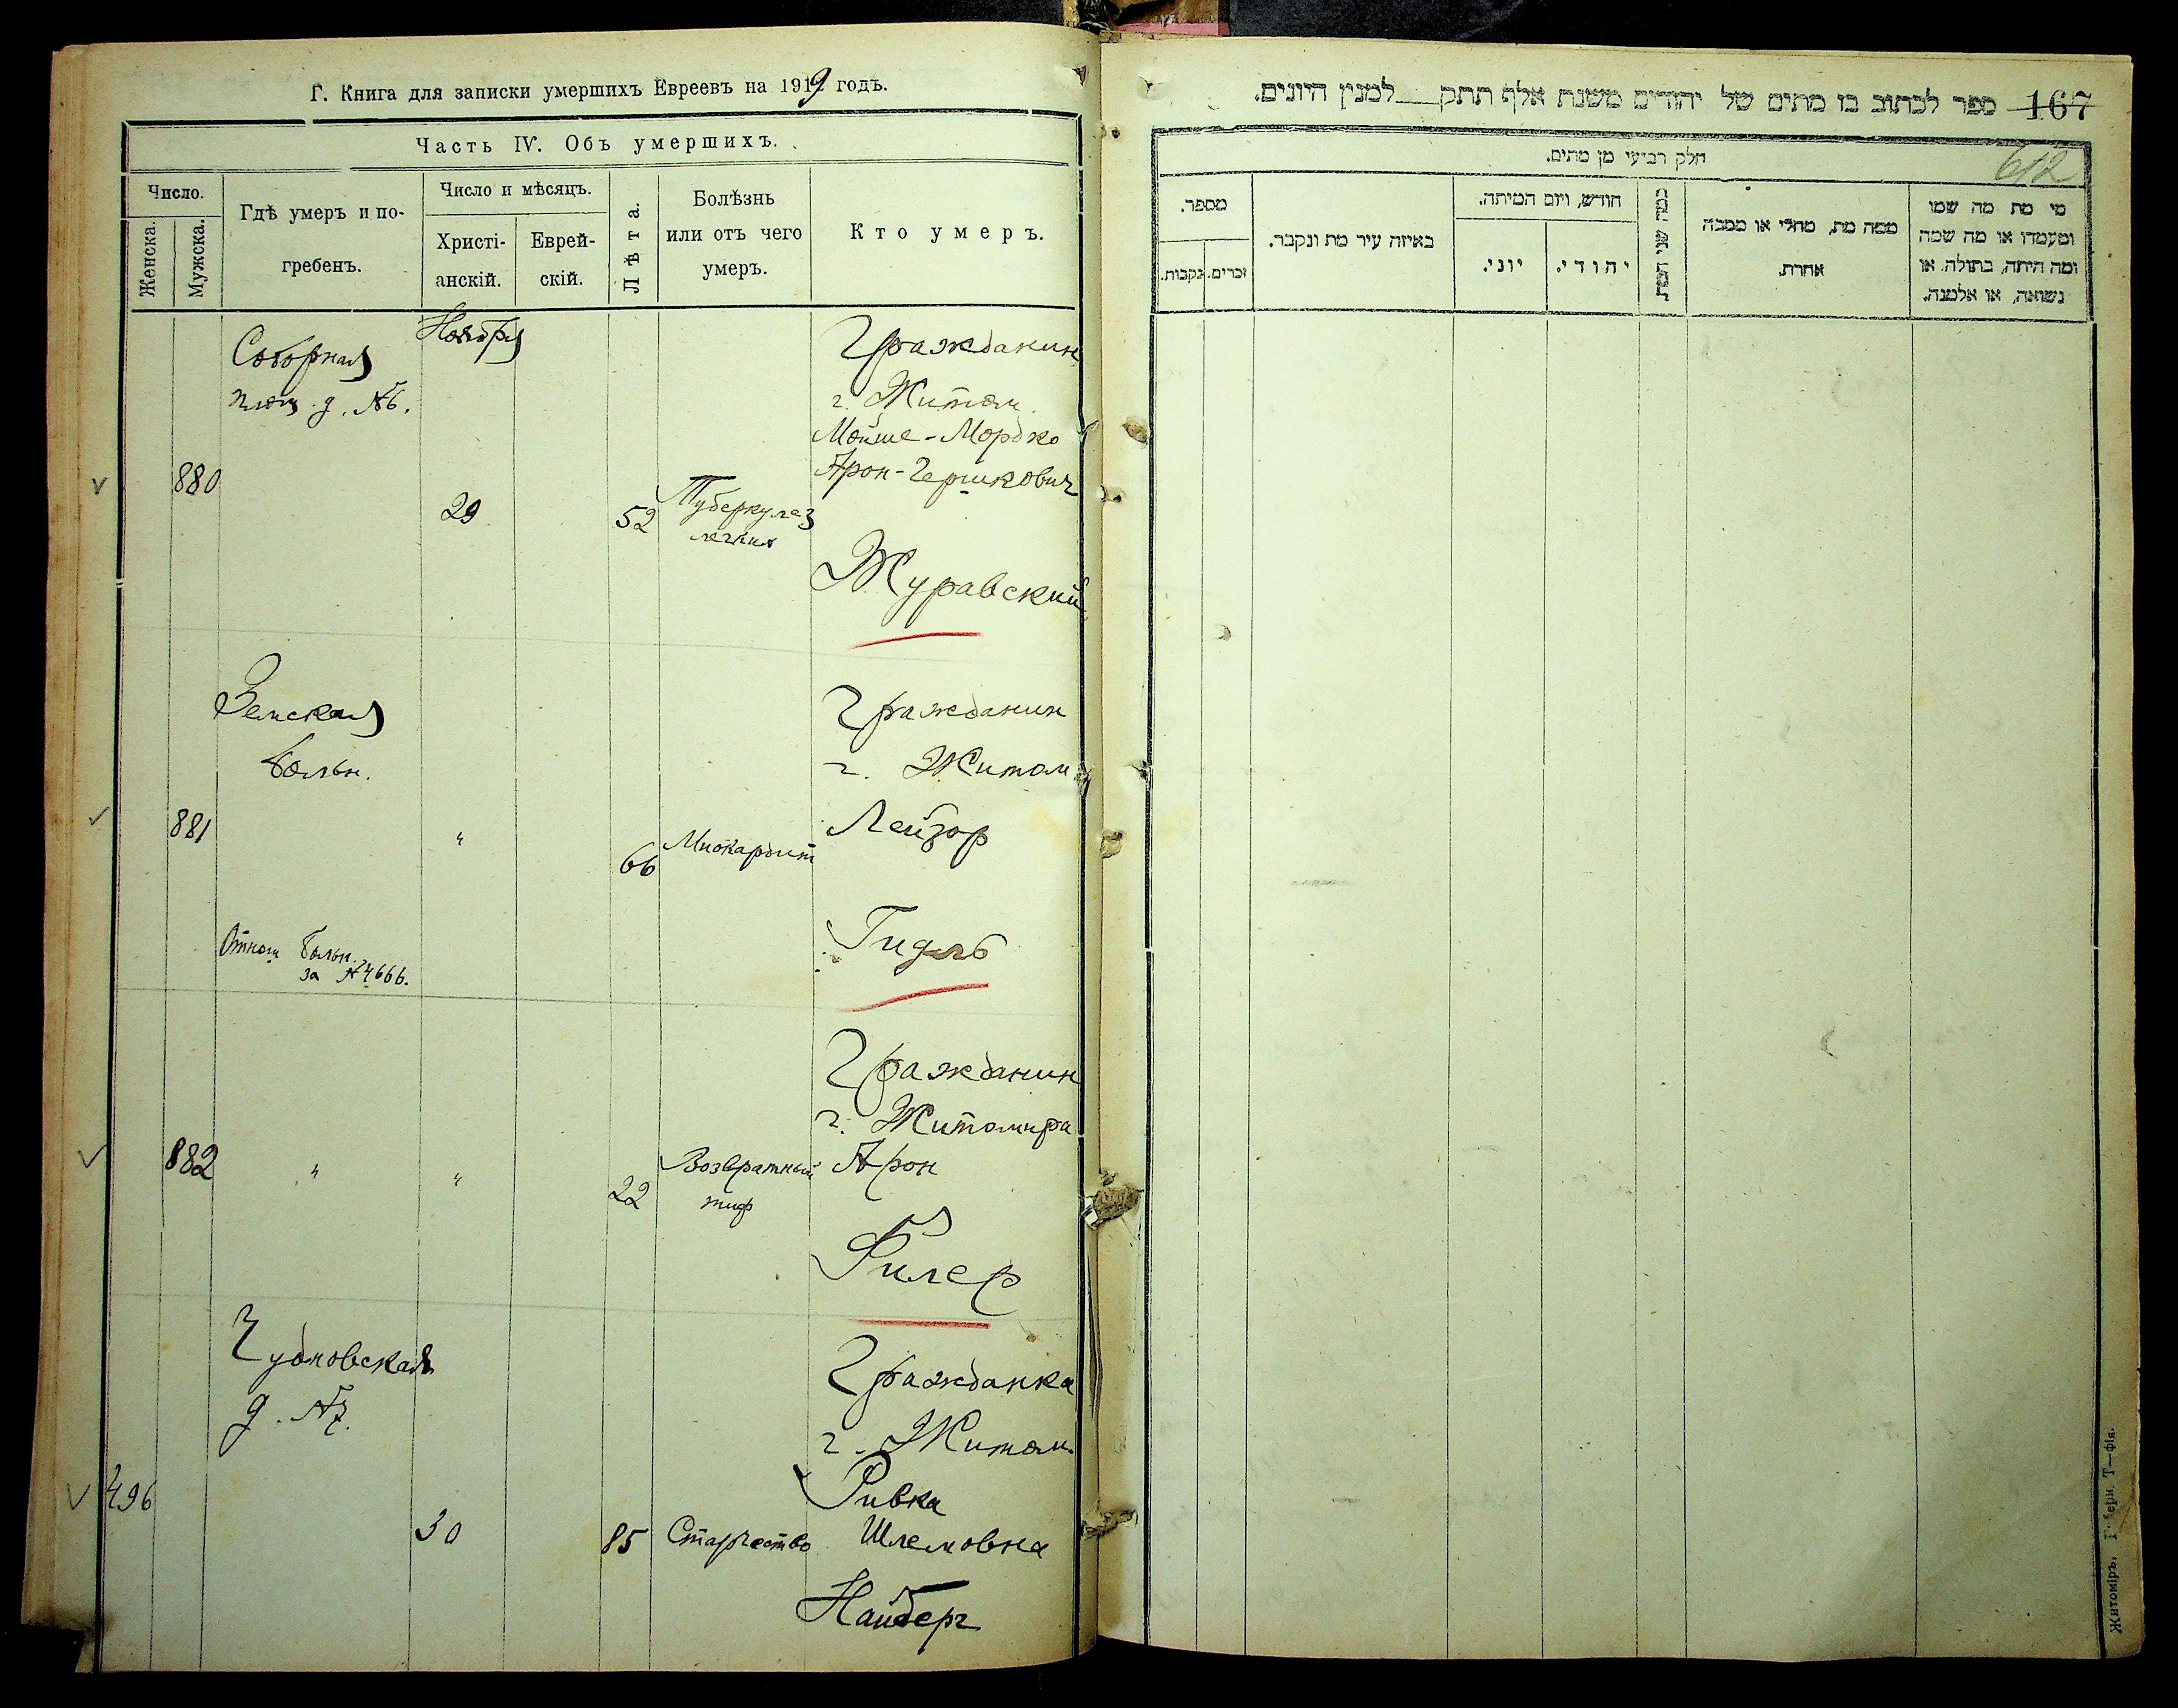 Г. Книга для записки умершихъ Евреевъ на 1919 годъ.
Часть IV. Объ умершихъ.
Число.
Женска.
Мужска.
Гдѣ умеръ и по-
гребенъ.
Число и мѣсяцъ.
Христі-
анскій.
Еврей-
скій.
Лѣта.
Болѣзнь
или отъ чего
умеръ.
Кто умеръ.
Соборная
площ. д. №6.
Ноября
880
29
52
Туберкулез
легких
Гражданин
г. Житом.
Мойше-Мордко
Арон-Гершкович
Журавский
Земская
больн.
881
"
66
Миокардит
Гражданин
г. Житом.
Лейзор
Гидль
Отнош. больн.
за №4666.
882
"
"
22
Возвратный
тиф
Гражданин
г. Житомира
Арон
Филер
Чудновская
д. №7.
496
30
85
Старчество
Гражданка
г. Житом.
Ривка
Шлемовна
Найберг
167
ספר לכתוב בו מתים של יהודים משנת אלף תתק למנין היונים.
612
חלק רביעי מן מתים.
מספר.
נקבות.
זכרים.
באיזה עיר מת ונקבר.
חודש, ויום המיתה.
יוני.
יהודי.
כמה שני המת
ממה מת, מחלי או מסבה
אחרת.
מי מת מה שמו
ומעמדו או מה שמה
ומה היתה, בתולה, או
נשואה, או אלמנה.
Житоміръ, Губерн. Т—фія.